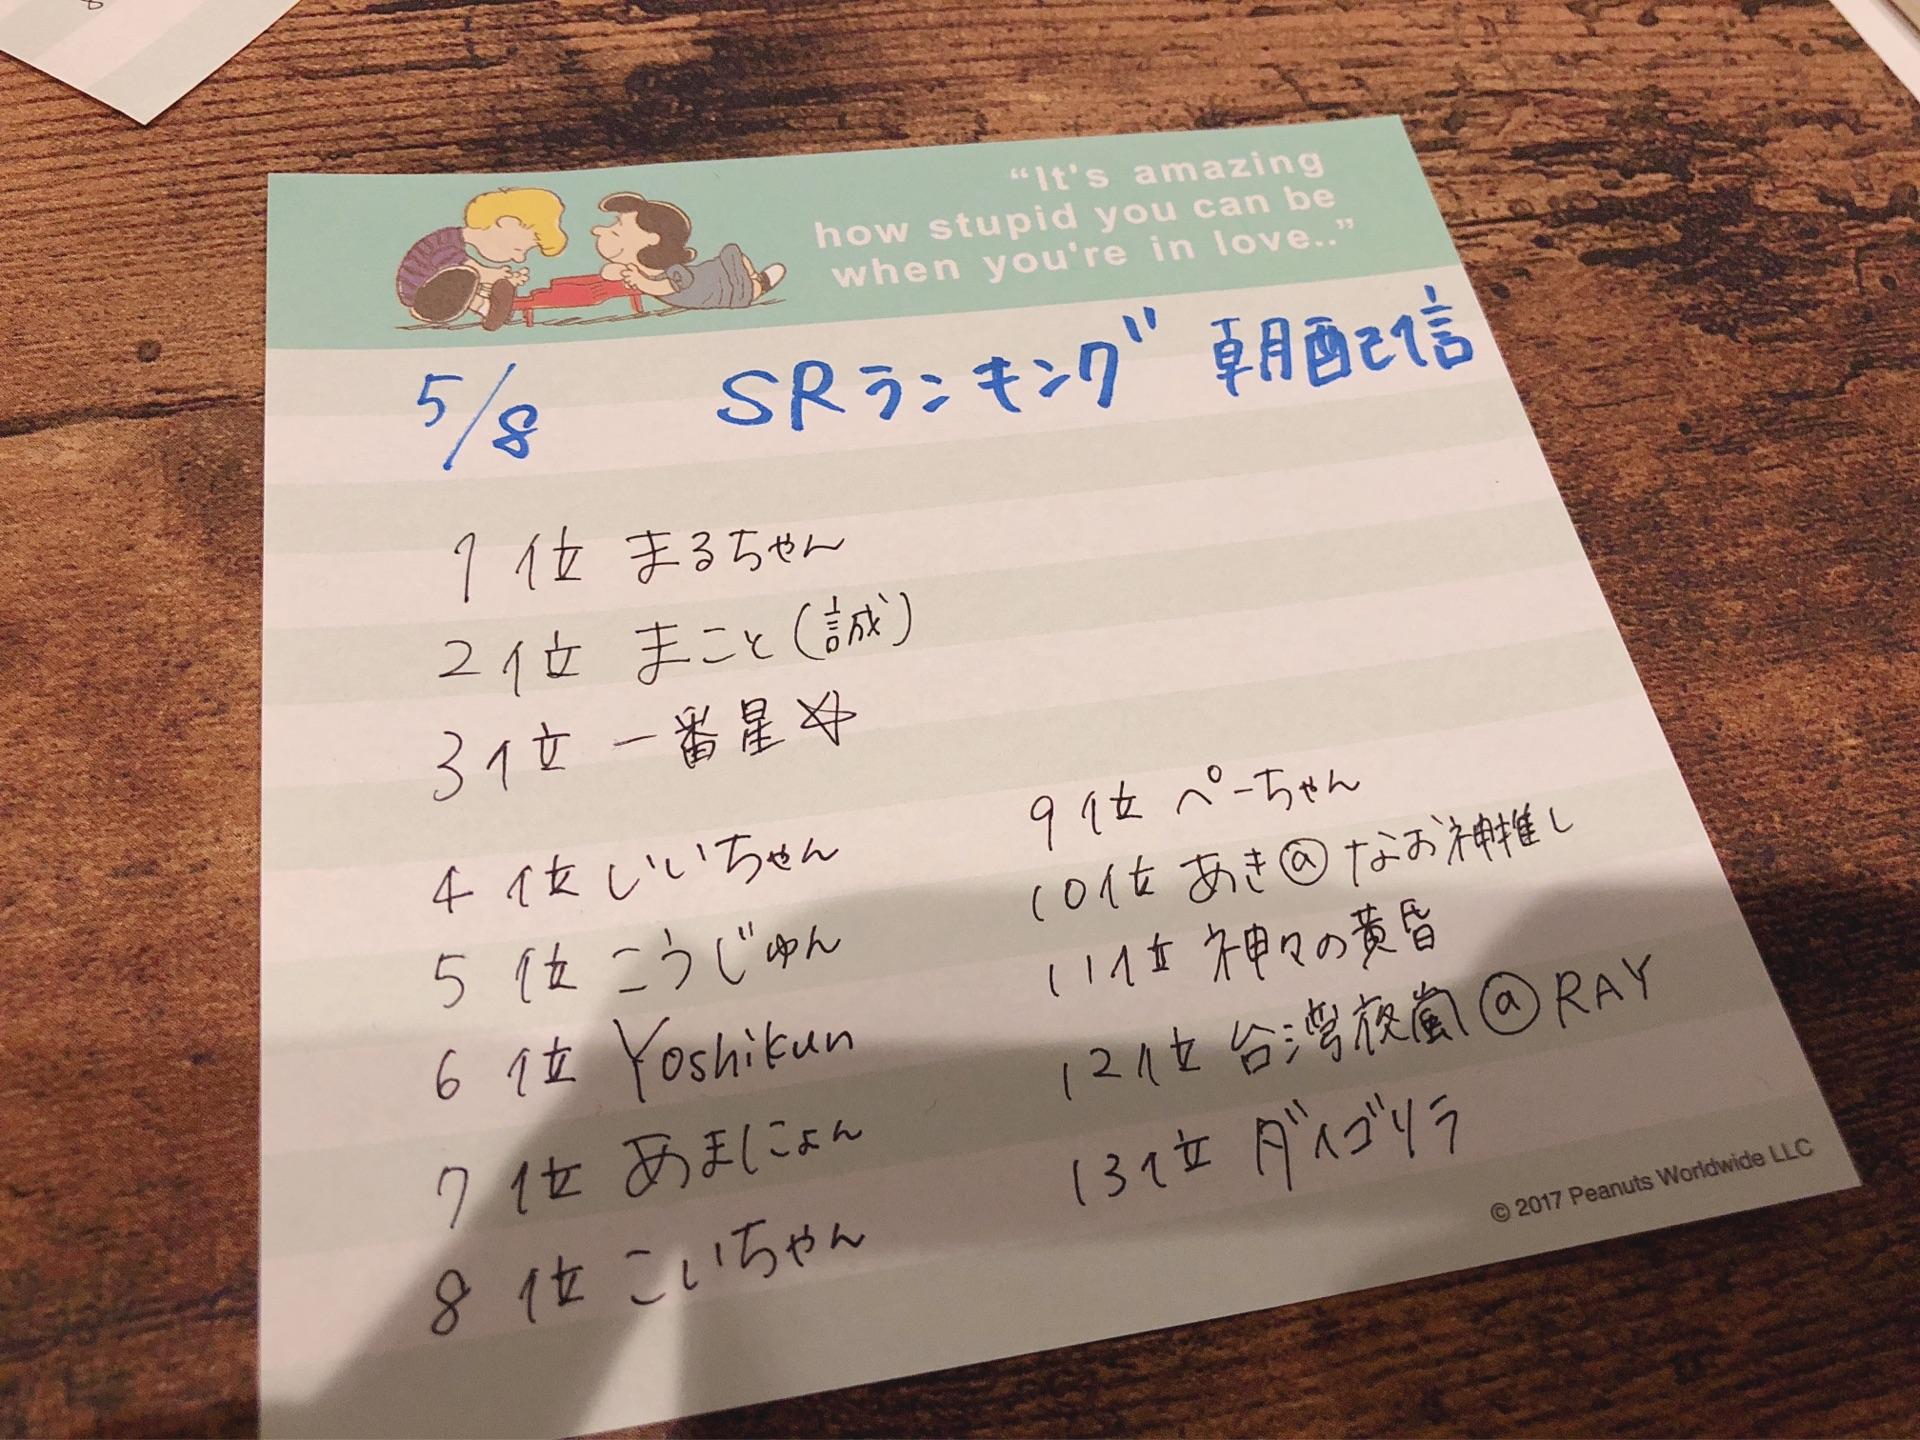 "It's amazing
how stupid you can be
when you're in love.."
5/8 SRランキング 朝配信
1位 まるちゃん
2位 まこと(誠)
3位 一番星☆
4位 じいちゃん
5位 こうじゅん
6位 Yoshikun
7位 あまにょん
8位 こいちゃん
9位 ぺーちゃん
10位 あき@なお神推し
11位 神々の黄昏
12位 台湾夜嵐@RAY
13位 ダイゴリラ
© 2017 Peanuts Worldwide LLC